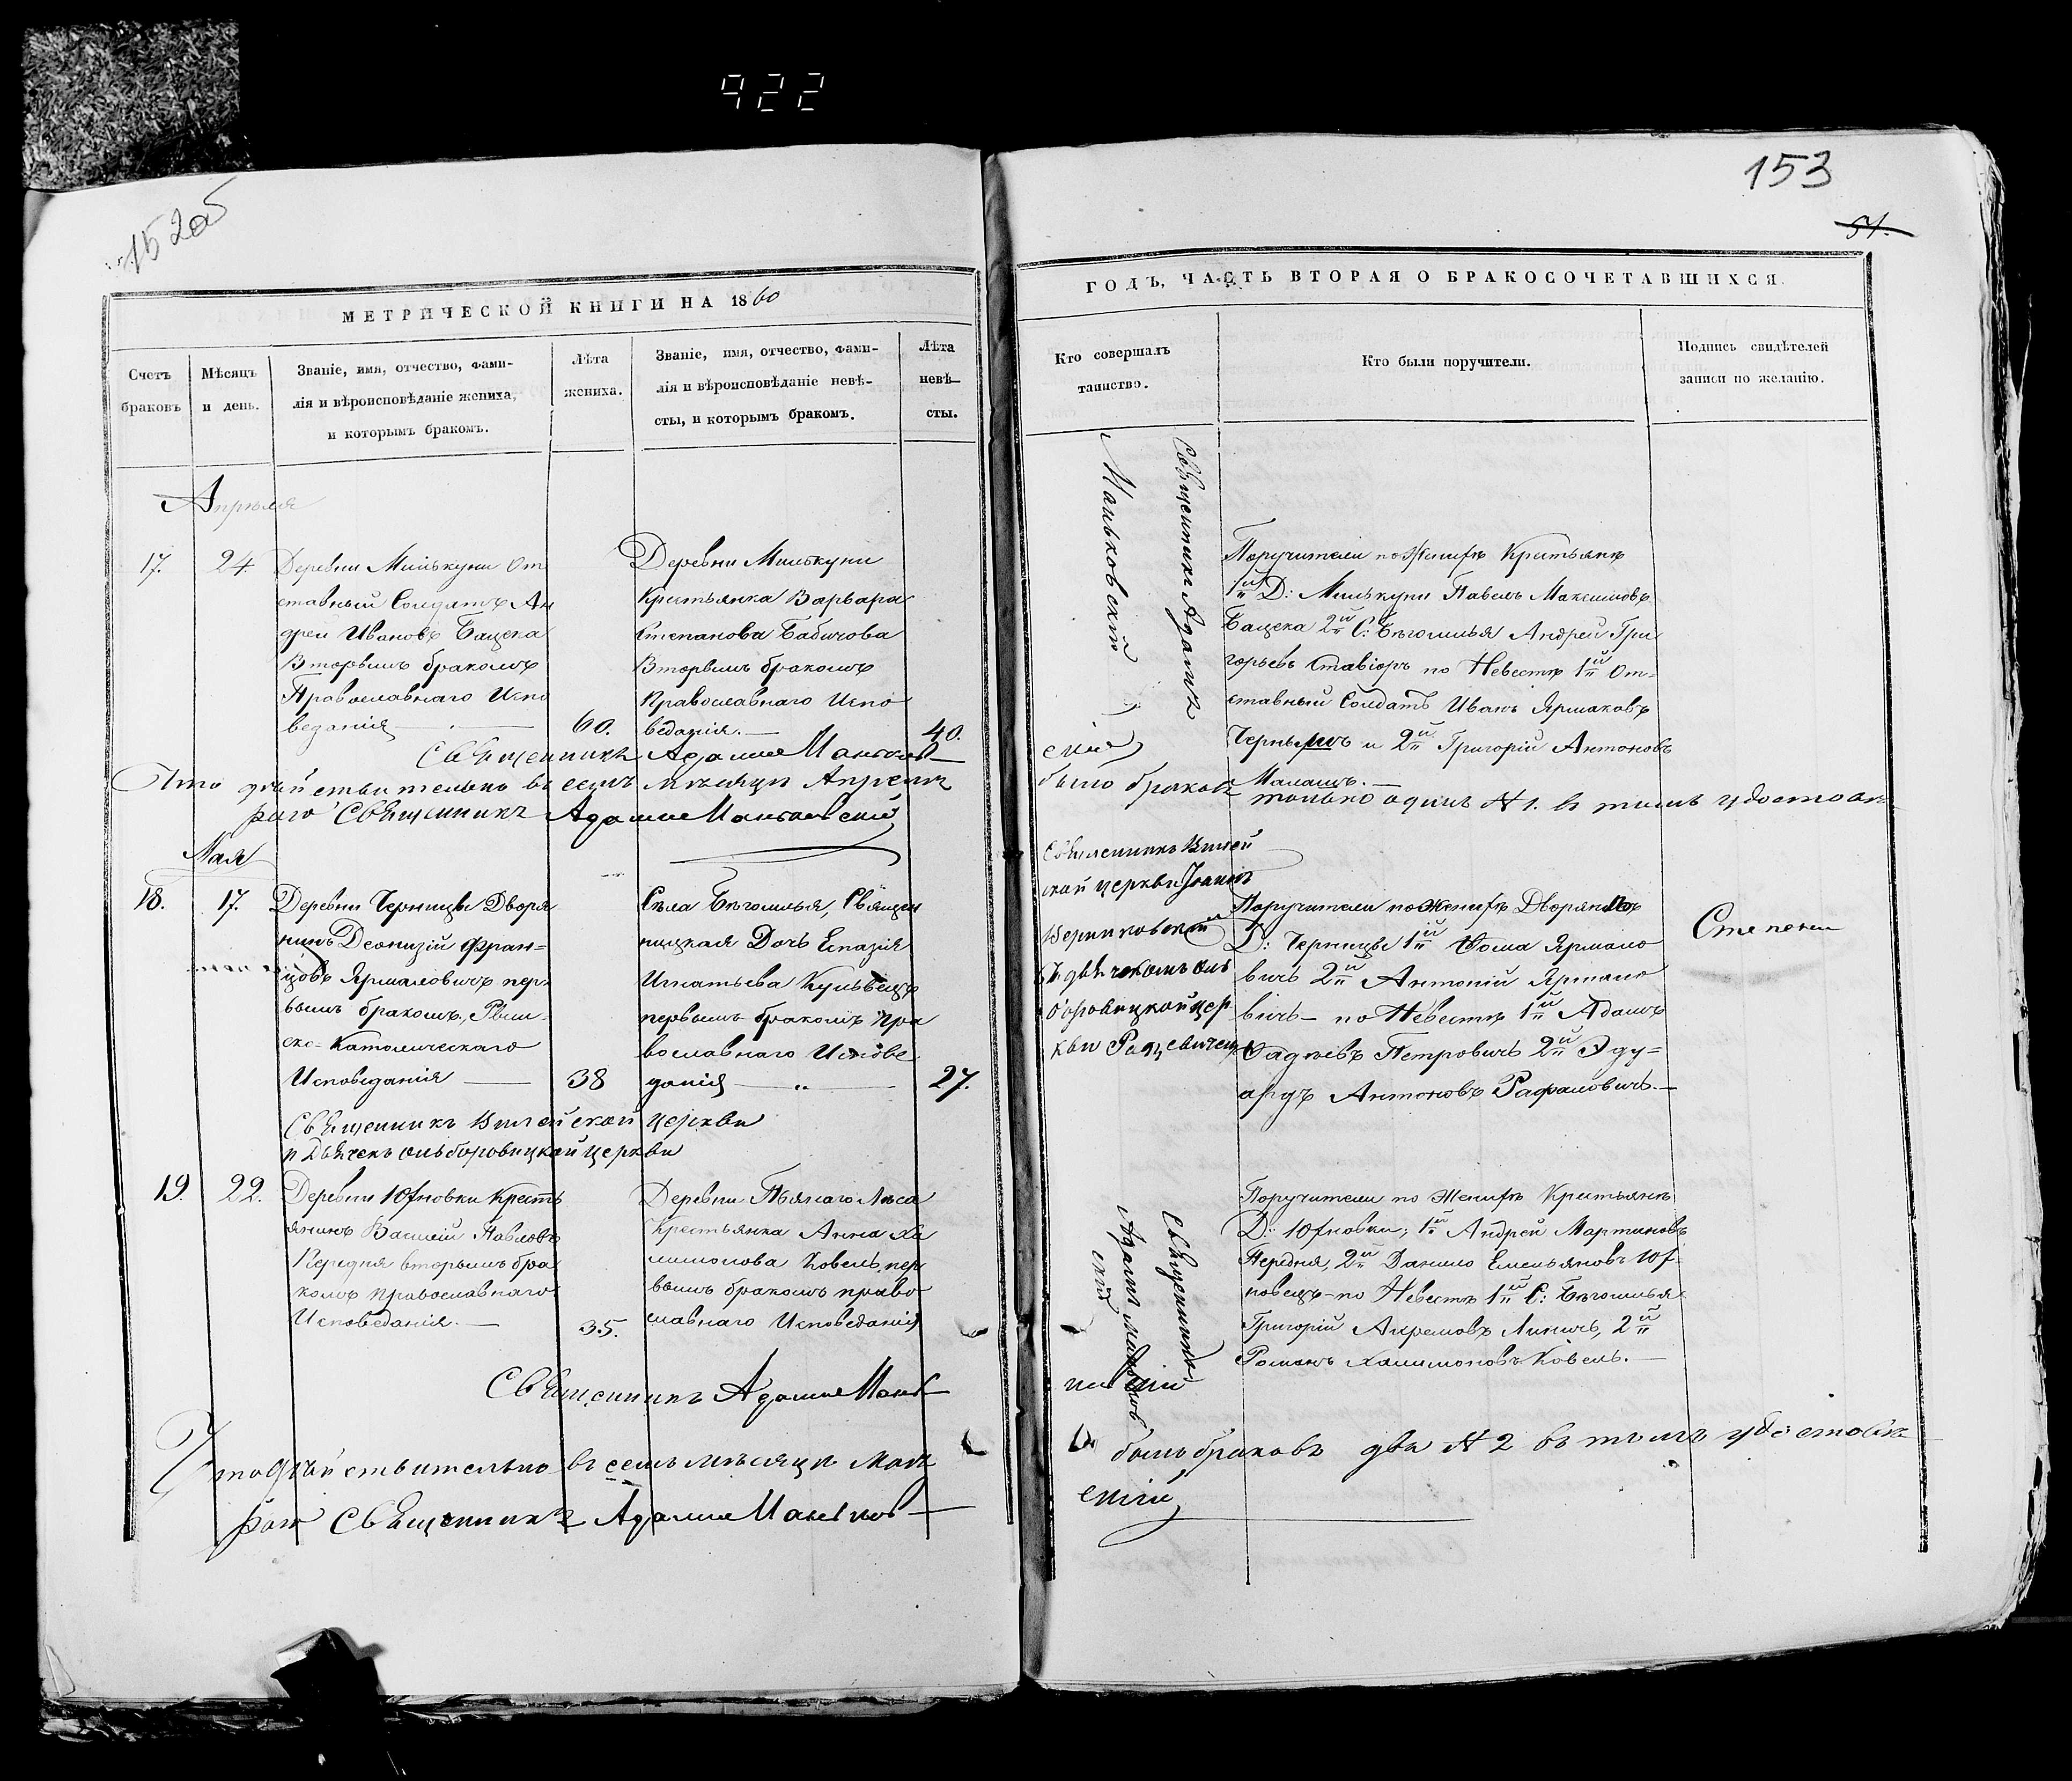 922
152об
153
51.
МЕТРИЧЕСКОЙ КНИГИ НА 1860
ГОДЪ, ЧАСТЬ ВТОРАЯ О БРАКОСОЧЕТАВШИХСЯ.
Счетъ
браковъ
Мѣсяцъ
и день.
Званіе, имя, отчество, фами-
лія и вѣроисповѣданіе жениха,
и которымъ бракомъ.
Лѣта
жениха.
Званіе, имя, отчество, фами-
лія и вѣроисповѣданіе невѣ-
сты, и которымъ бракомъ.
Лѣта
невѣ-
сты.
Кто совершалъ
таинство.
Кто были поручители.
Подпись свидѣтелей
записи по желанію.
Апрѣля
17.
24.
Деревни Милькуни От
ставный Солдатъ Ан
дрей Ивановъ Бацека
Вторымъ бракомъ
Православнаго Испо
веданія
60.
Деревни Милькуни
Крестьянка Варвара
Степанова Бабичова
Вторымъ бракомъ
Православнаго Испо
веданія.
40.
Священникъ Адамъ
Маньковскій
Поручители по Женихѣ Крестьяне
1й Д: Милькуни Павелъ Максимовъ
Бацека 2й С: Бѣгомля Андрей Гри
горьевъ Ставіоръ по Невестѣ 1й От-
ставный Солдатъ Иванъ Ярмаковъ
и 2й Григорій Антоновъ
Священникъ Адамъ Маньков-
скій
Что дѣйствительно въ семъ мѣсяцѣ Апрелѣ
было браковъ только одинъ № 1. въ томъ удостовѣ-
ряю Священникъ Адамъ Маньковскій
Мая
18.
17.
Деревни Черницы Дворя
нинъ Деонизій Фран=
цовъ Ярмаловичъ пер-
вымъ бракомъ, Рим-
ско-Католическаго
Исповеданія
38
Села Бѣгомля, Священ
ницкая Дочь Еспазія
Игнатьева Кульвецъ
первымъ бракомъ Пра
вославнаго Испове
данія
27.
Священникъ
ской церкви Іоаннъ
съ дьячкомъ
церкви
Поручители по Женихѣ Дворяне
Д: Черницы 1й Ѳома Ярмоло
вичъ 2й Антоній Ярмоло
вичъ - по Невестѣ 1й Адамъ
Фадѣевъ Петровичъ 2й Эду=
ардъ Антоновъ Рафаловичъ.
Священникъ церкви
и Дьячекъ церкви
19.
22.
Деревни Юхновки Кресть
янинъ Василій Павловъ
Передня вторымъ бра
комъ православнаго
Исповеданія.
35.
Деревни Пьянаго Лѣса
Крестьянка Анна Ха
лимонова Ковель, пер
вымъ бракомъ право
славнаго Исповеданія
Священникъ
Адамъ Маньков
скій
Поручители по Женихѣ Крестьяне
Д: Юхновки; 1й Андрей Мартиновъ
Передня, 2й Данило Емельяновъ Юх-
новецъ - по Невестѣ 1й С: Бѣгомля
Григорій Линичъ, 2й
Романъ Халимоновъ Ковель.
Священникъ Адамъ Мань-
ковскій
Что дѣйствительно въ семъ мѣсяцѣ маѣ
было браковъ два № 2 въ томъ удостовѣ-
ряю Священникъ Адамъ Маньков-
скій